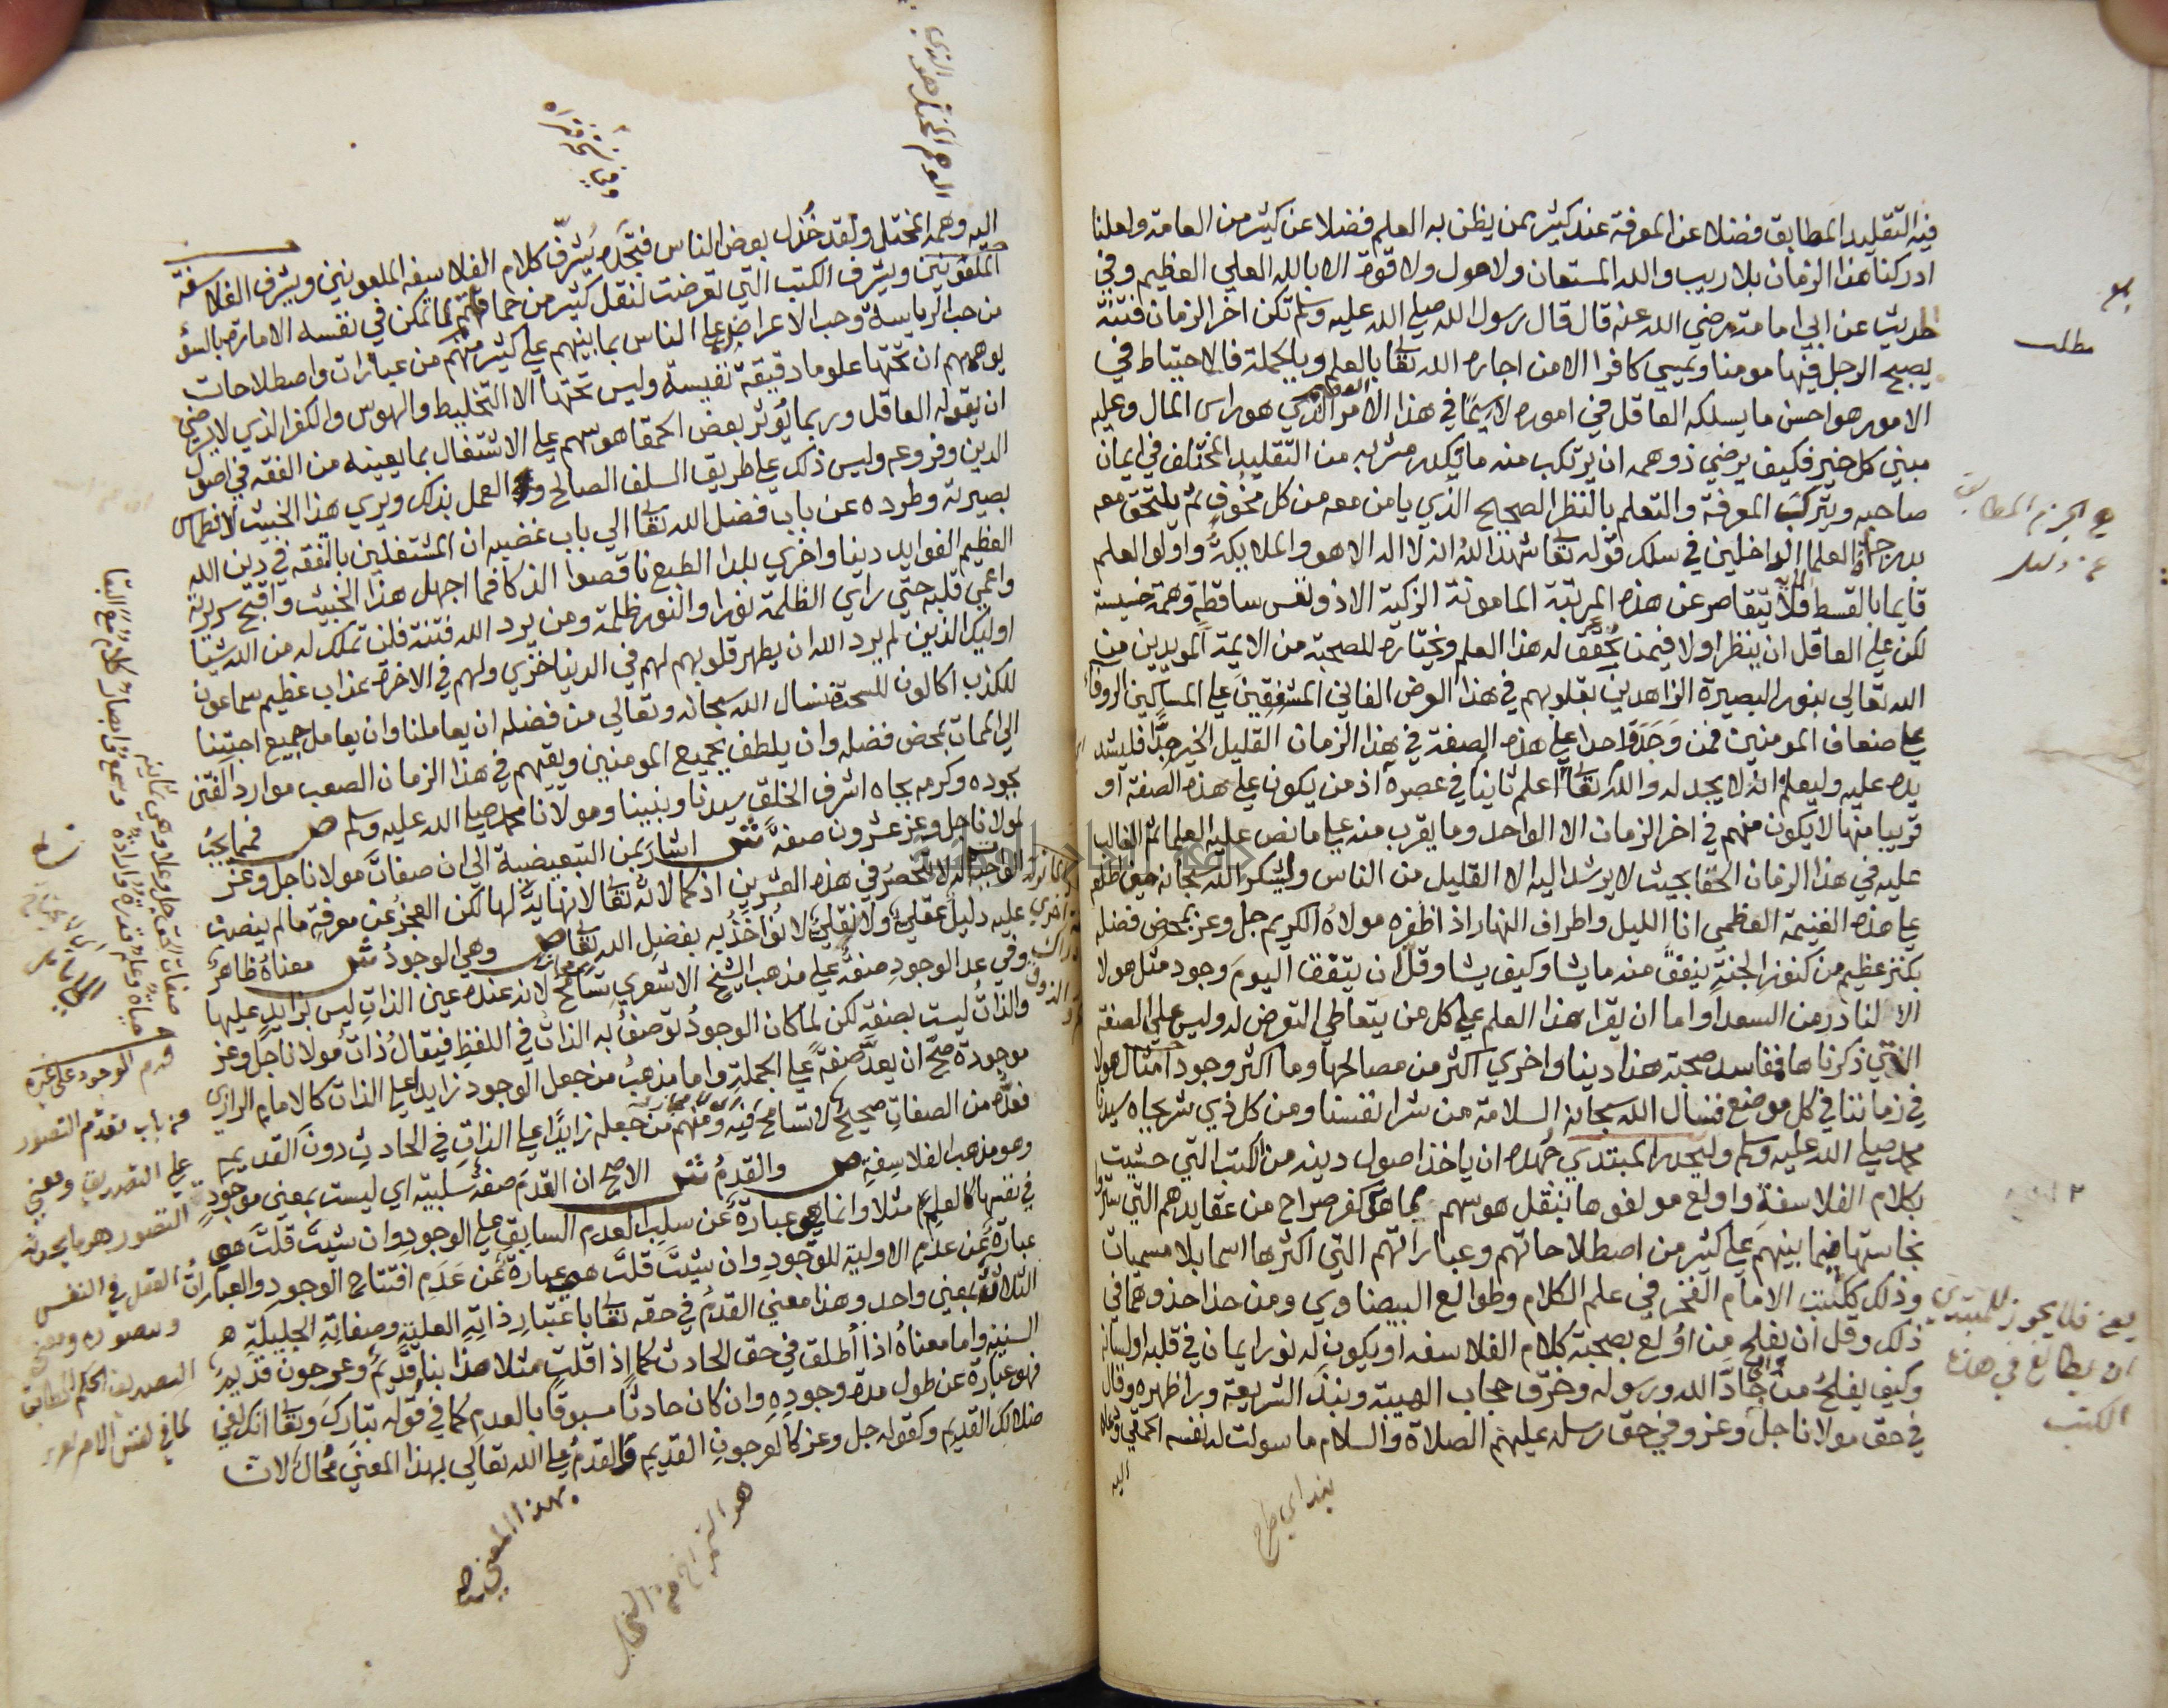 فيه التقليد المطابق فضلا عن المعرفة عند كثير ممن يظن به العلم فضلا عن كثير من العامة ولعلنا
ادركنا هذا الزمان بلا ريب والله المستعان ولا حول ولا قوة الا بالله العلي العظيم وفي
الحديث عن ابي امامة رضي الله عنه قال قال رسول الله صلي الله عليه وسلم تكن اخر الزمان فتنة
يصبح الرجل فيها مومنا ويمسي كافرا الا من اجاره الله تعا بالعلم وبالجملة فالاحتياط في
الامور هو احسن ما يسلكه العاقل في اموره لاسيما في هذا الامر الذي هو راس المال وعليه
مبني كل خير فكيف يرضي ذو همة ان يرتكب منه ما يكدر مشربه من التقليد المختلف في ايمان
صاحبه ويترك المعرفة والتعلم بالنظر الصحيح الذي يامن معه من كل مخوف ثم يلتحق معه
بدرجة العلما الداخلين في سلك قوله تعا شهد الله انه لا اله الا هو والملايكة واولوا العلم
قايما بالقسط فلا يتقاصر عن هذه المرتبة المامونة الزكية الا ذو نفس ساقطة وهمة خسيسة
لكن علي العاقل ان ينظر اولا فيمن يحقق له هذا العلم ويختاره للصحبة من الايمة المويدين من
الله تعالي بنور البصيرة الزاهدين بقلوبهم في هذا العرض الفاني المشفقين علي المساكين الروفا
علي ضعفا المومنين فمن وجد واحدا علي هذه الصفة في هذا الزمان القليل الخير جدا فليشد
يده عليه وليعلم انه لا يجد له والله تعا اعلم ثانيا في عصره اذ من يكون علي هذه الصفة او
قريبا منها لا يكون منهم في اخر الزمان الا الواحد وما يقرب منه علي ما نص عليه العلما ثم الغالب
عليه في هذا الزمان الخفا بحيث لا يرشد اليه الا القليل من الناس وليشكر الله سبحانه حين اطلعه
علي هذه الغنيمة العظمي انا الليل واطراف النهار اذ اظفره مولاه الكريم جل وعز بمحض فضله
بكنز عظيم من كنوز الجنة ينفق منه ما يشا وكيف يشا وقل ان يتفق اليوم وجود مثل هولا
الا لنادر من السعدا واما ان يقرا هذا العلم علي كل من يتعاطي التعرض له وليس علي الصفة
التي ذكرناها فمفاسد صحبة هذا دينا واخري اكثر من مصالحها وما اكثر وجود امثال هولا
في زماننا في كل موضع فنسال الله سبحانه السلامة من شر انفسنا ومن كل ذي شر بجاه سيدنا
محمد صلي الله عليه وسلم وليحذر المبتدي جهده ان ياخذ اصول دينه من الكتب التي حشيت
بكلام الفلاسفة واولع مولفوها بنقل هوسهم بما هو كفر صراح من عقايدهم التي ستروا
نجاستها فيما بينهم علي كثير من اصطلاحاتهم وعباراتهم التي اكثرها اسما بلا مسميات
وذلك ككتب الامام الفخر في علم الكلام وطوالع البيضاوي ومن حذا حذوهما في
ذلك وقل ان يفلح من اولع بصحبة كلام الفلاسفة او يكون له نور ايمان في قلبه او لسانه
وكيف يفلح من والي من حاد الله ورسوله وخرق حجاب الهيبة ونبذ الشريعة ورا ظهره وقال
في حق مولانا جل وعز وفي حق رسله عليهم الصلاة والسلام ما سولت له نفسه الحمقي ودعاه
اليه
مطلب
ان يطالع في هذه
الكتب
نبذ اي طرح
اليه وهمه المختل ولقد خذل بعض الناس فتجده يشرف كلام الفلاسفة الملعونين ويشرف الفلاسفة
الملعونين ويشرف الكتب التي تعرضت لنقل كثير من حماقاتهم لما تمكن في نفسه الامارة بالسوء
من حب الرياسة وحب الاغراب علي الناس بما ينبهم علي كثير منهم من عبارات واصطلاحات
يوهمهم ان تحتها علوما دقيقة نفيسة وليس تحتها الا التخليط والهوس والكفر الذي لا يرضي
ان يقوله العاقل وربما يوثر بعض الحمقا هوسهم علي الاشتغال بما يعينه من الفقه في اصول
الدين وفروعه وليس ذلك علي طريق السلف الصالح والعمل بذلك ويري هذا الخبيث لانطماس
بصيرته وطرده عن باب فضل الله تعا الي باب غضبه ان المشتغلين بالتفقه في دين الله
العظيم الفوايد دينا واخري بلدا الطبع ناقصوا الذكا فما اجهل هذا الخبيث واقبح سريرته
واعمي قلبه حتي راي الظلمة نورا والنور ظلمة ومن يرد الله فتنته فلن تملك له من الله شيا
اوليك الذين لم يرد الله ان يطهر قلوبهم لهم في الدنيا خزي ولهم في الاخرة عذاب عظيم سماعون
للكذب اكالون للسحت فنسال الله سبحانه وتعالي من فضله ان يعاملنا وان يعامل جميع احبتنا
الي الممات بمحض فضله وان يلطف بجميع المومنين ويقيهم في هذا الزمان الصعب موارد الفتن
بجوده وكرمه بجاه اشرف الخلق سيدنا ونبينا ومولانا محمد صلي الله عليه وسلم ص فمما يجب
لمولانا جل وعز عشرون صفة ش اشار بمن التبعيضية الي ان صفات مولانا جل وعز
الواجبة له لا تنحصر في هذه العشرين اذ كمالاته تعا لا نهاية لها لكن العجز عن معرفة ما لم ينصب
عليه دليل عقلي ولا نقلي لا نواخذ به بفضل الله تعا ص وهي الوجود ش معناه ظاهر
وفي عد الوجود صفة علي مذهب الشيخ الاشعري تسامح لانه عنده عين الذات ليس بزايد عليها
والذات ليست بصفة لكن لما كان الوجود توصف به الذات في اللفظ فيقال ذات مولانا جل وعز
موجودة صح ان يعد صفة علي الجملة واما مذهب من جعل الوجود زايدا علي الذات كالامام الرازي
فعده من الصفات صحيح لا تسامح فيه ومنهم من جعله زايدا علي الذات في الحادث دون القديم
وهو مذهب الفلاسفة ص والقدم ش الاصح ان القدم صفة سلبية اي ليست بمعني موجود
في نفسها كالعلم مثلا وانما هو عبارة عن سلب العدم السابق علي الوجود وان شيت قلت هي
عبارة عن عدم الاولية للوجود وان شيت قلت هي عبارة عن عدم افتتاح الوجود والعبارات
الثلاثة بمعني واحد وهذا معني القدم في حقه تعا باعتبار ذاته العلية وصفاته الجليلة
السنية واما معناه اذا اطلق في حق الحادث كما اذا قلت مثلا هذا بنا قديم وعرجون قديم
فهو عبارة عن طول مدة وجوده وان كان حادثا مسبوقا بالعدم كما في قوله تبارك وتعا انك لفي
ضلالك القديم وكقوله جل وعز كالعرجون القديم والقدم علي الله تعالي بهذا المعني محال لان
بهذا المعني
قدم الوجود علي غيره
من باب تقدم التصور
علي التصديق ومعني